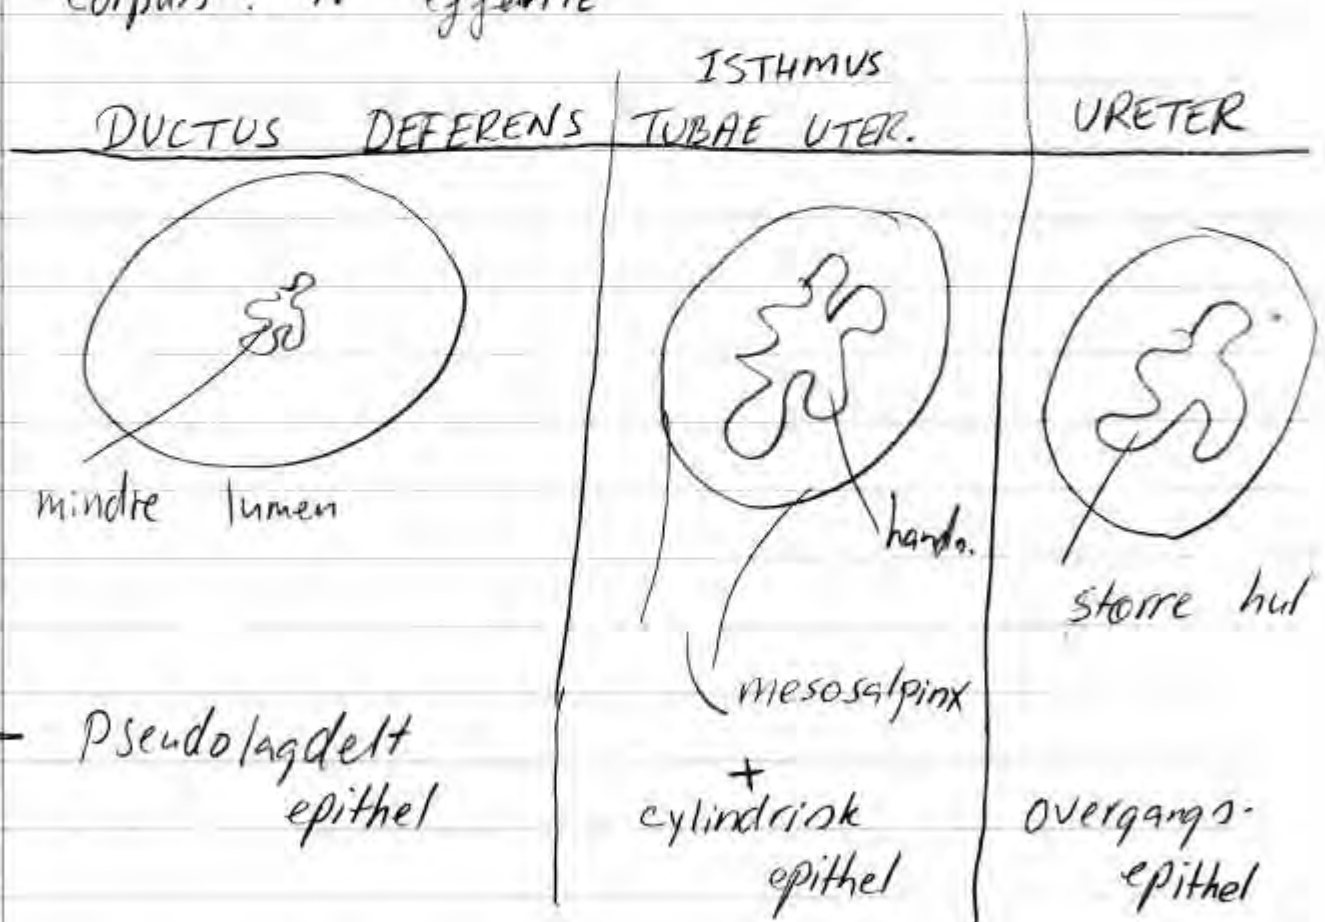 DUCTUS DEFERENS
ISTHMUS
TUBAE UTER.
URETER
mindre lumen
større hul
mesosalpinx
- Pseudolagdelt
epithel
+
cylindrisk
epithel
overgangs-
epithel